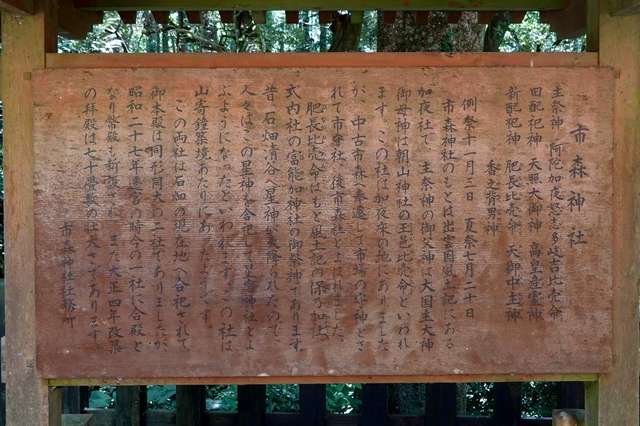 市森神社
主祭神 阿陀加夜怒志多岐吉比売命
旧配祀神 天照大御神 高皇産霊神
新配祀神 肥長比売命 天御中主神
香之背男神
例祭十一月三日 夏祭七月二十日
市森神社のもとは出雲国風土記にある
加夜社で、主祭神の御父神は大国主大神
御母神は朝山神社の玉邑比売命といわれ
ます。この社は加夜床の地にありました
が、中古市森へ奉遷して市場の守神とさ
れて市守社、後市森社とよばれました。
肥長比売命はもと風土記の保乃加社、
式内社の富能加神社の御祭神であります。
昔、石畑清谷へ星神が天降られたので、
人々はこの星神を合祀して星宮神社とよ
ぶようになったといわれます。この社は
山寄鐘築境あたりにあったようです。
この両社は石畑の現在地へ合祀されて
御本殿は同形同大の二社でありましたが、
昭和二十七年遷宮の時今の一社に合殿と
なり幣殿も新設され、また大正四年改築
の拝殿は七十畳敷の壮大さであります。
市森神社社務所